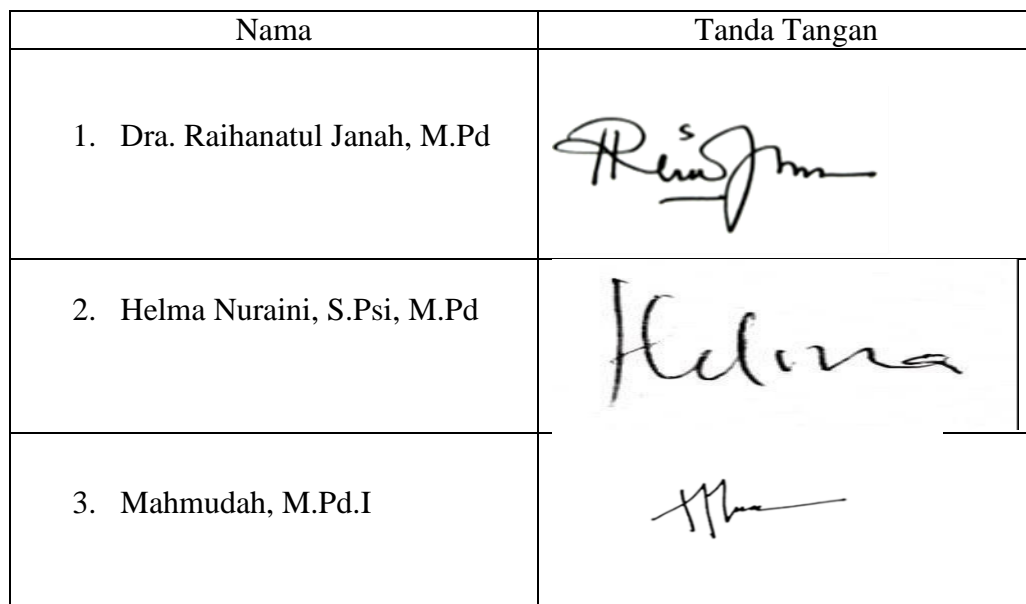 Nama Tanda Tangan
1. Dra. Raihanatul Janah, M.Pd
2. Helma Nuraini, S.Psi, M.Pd Helma
3. Mahmudah, M.Pd.I